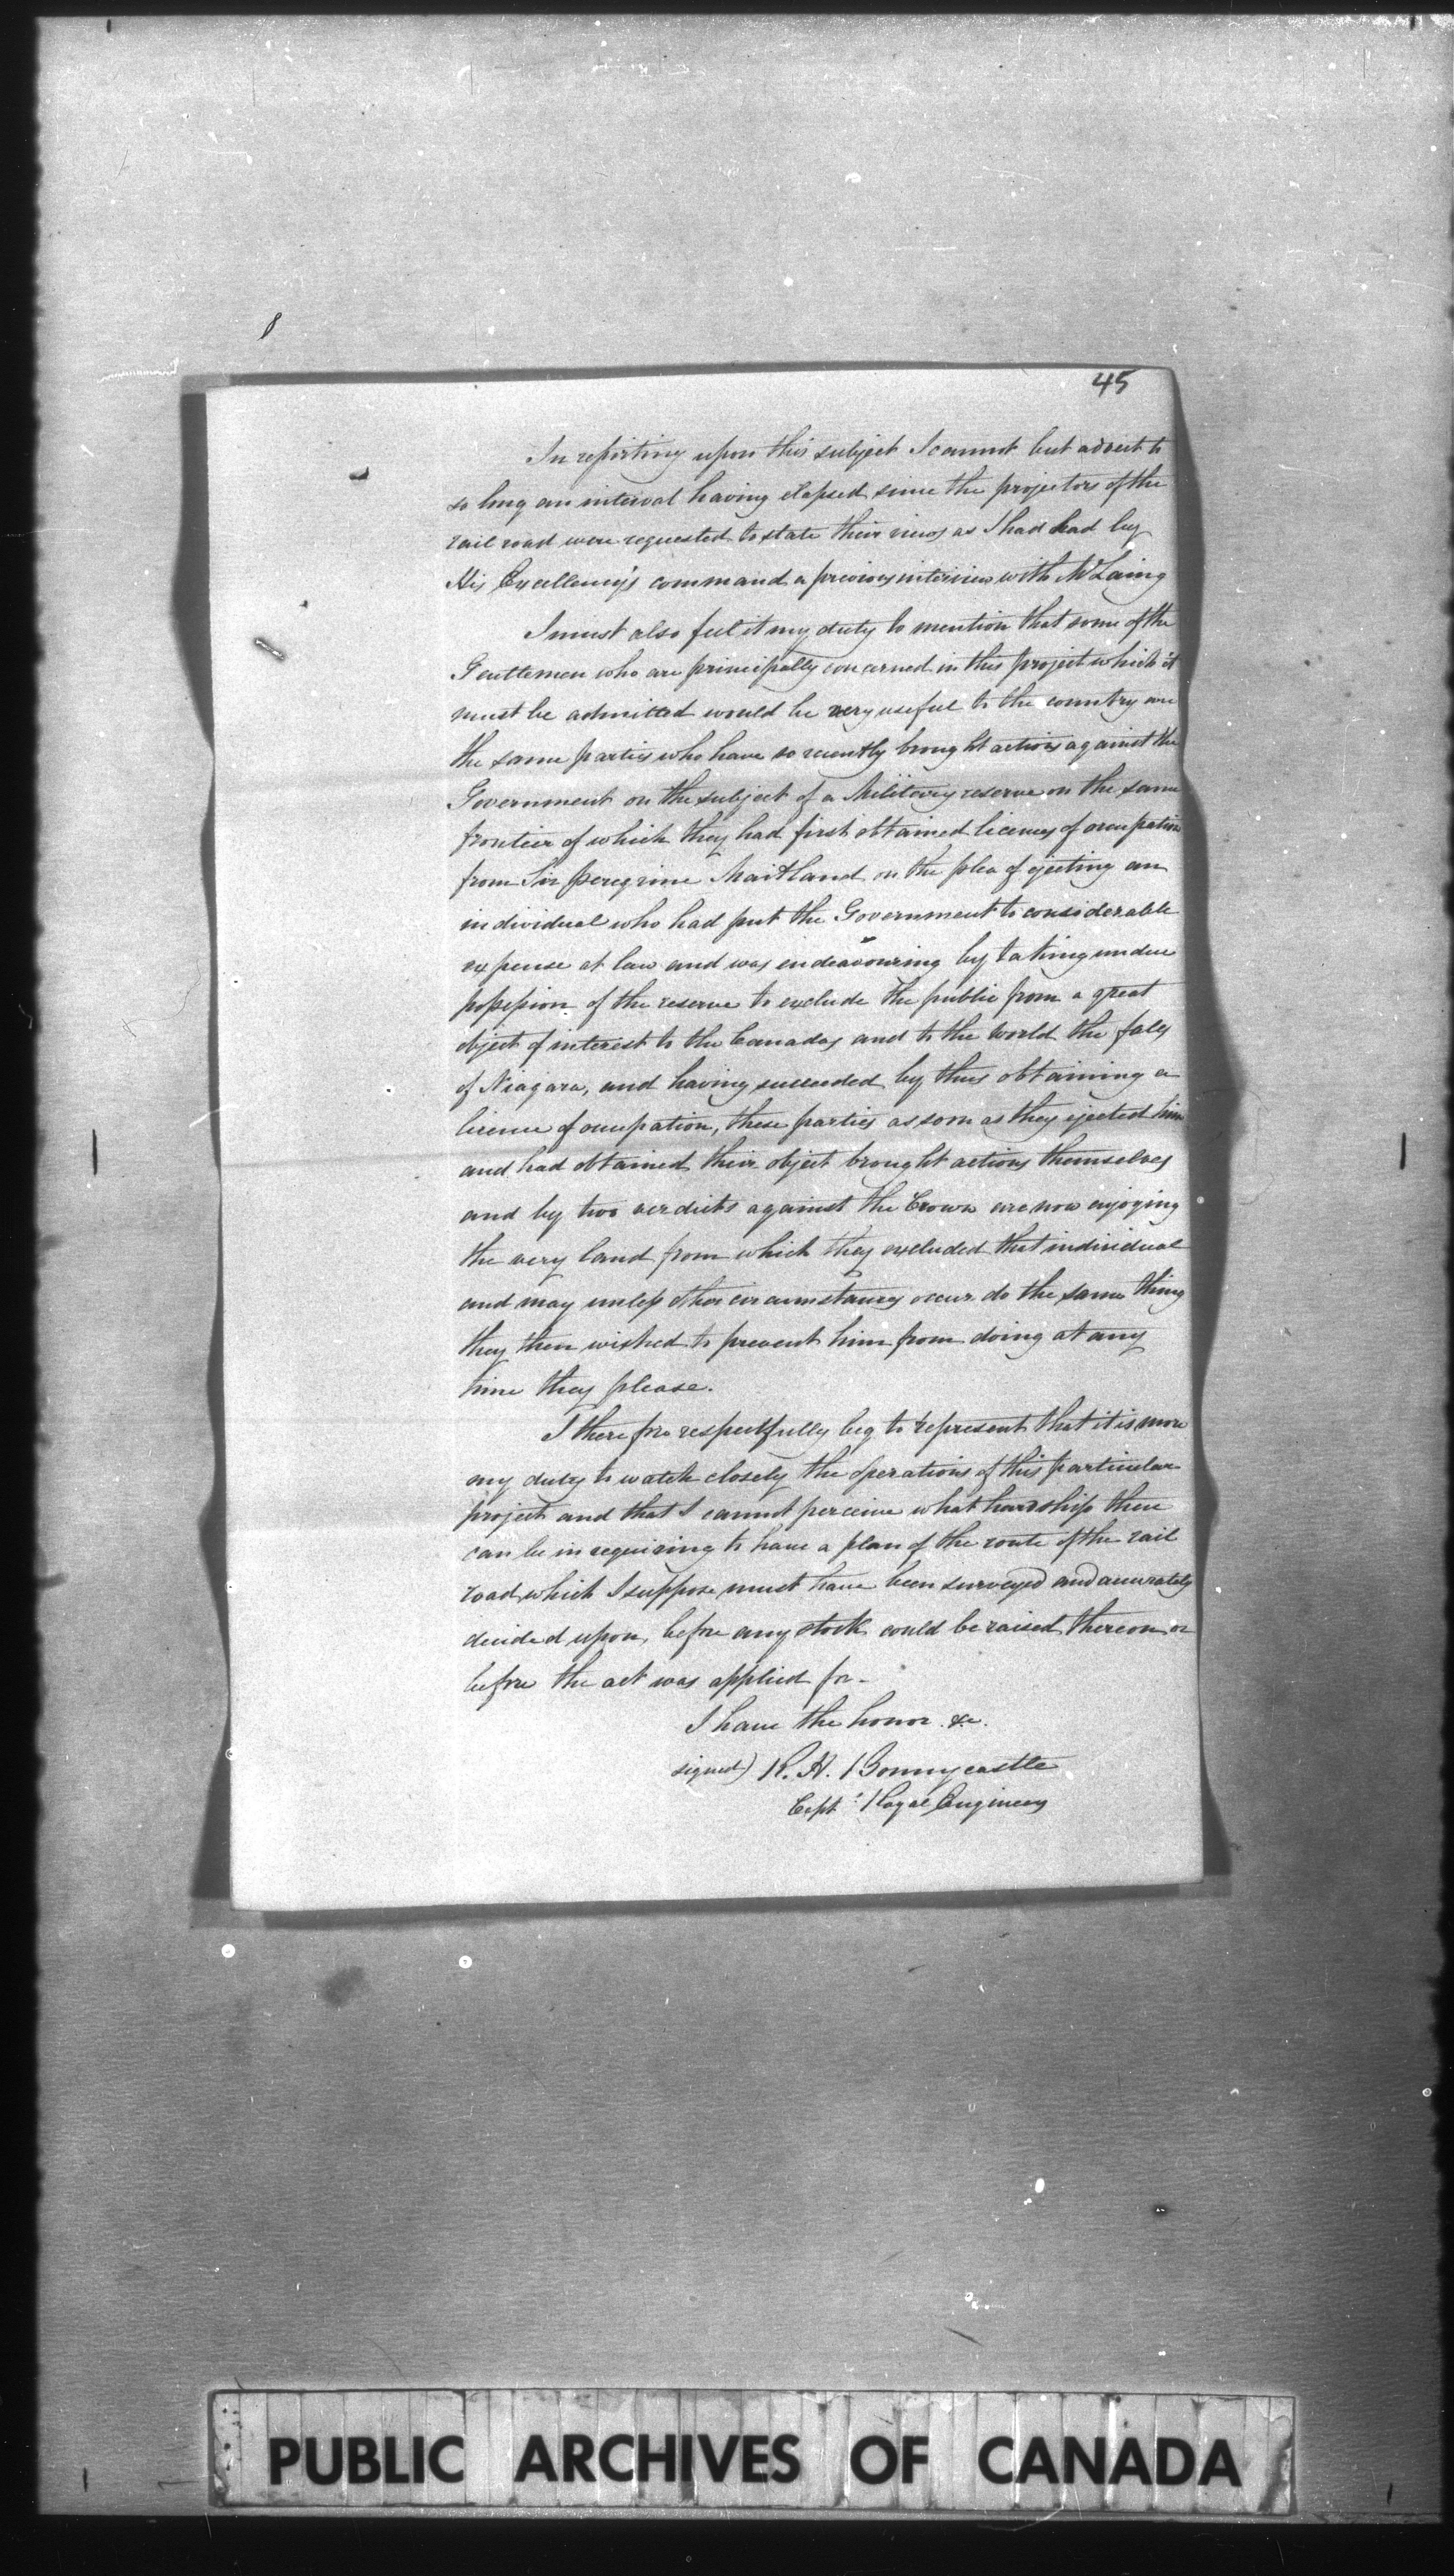 45
In reporting upon this subject I cannot but advert to
so long an interval having elapsed since the projectors of the
rail road were requested to state their views as I had had by
His Excellency's command a previous interview with Mr Laing
I must also feel it my duty to mention that some of the
Gentlemen who are principally concerned in this project which it
must be admitted would be very useful to the country are
the same parties who have so recently brought actions against the
Government on the subject of a Military reserve on the same
frontier of which they had first obtained licences of occupation
from Sir Peregrine Maitland on the plea of ejecting an
individual who had put the Government to considerable
expense at law and was endeavouring by taking undue
possession of the reserve to exclude the public from a great
object of interest to the Canadas and to the World the falls
of Niagara, and having succeeded by thus obtaining a
licence of occupation, these parties as soon as they ejected him
and had obtained their object brought actions themselves
and by two verdicts against the Crown are now enjoying
the very land from which they excluded that individual
and may unless other circumstances occur do the same thing
they then wished to prevent him from doing at any
time they please.
I therefore respectfully beg to represent that it is more
my duty to watch closely the operations of this particular
project and that I cannot perceive what hardship there
can be in requiring to have a plan of the route of the rail
road, which I suppose must have been surveyed and accurately
decided upon, before any stock could be raised thereon or
before the act was applied for -
I have the honor &c.
signed) R. H. Bonnycastle
Capt: Royal Engineers
PUBLIC ARCHIVES OF CANADA